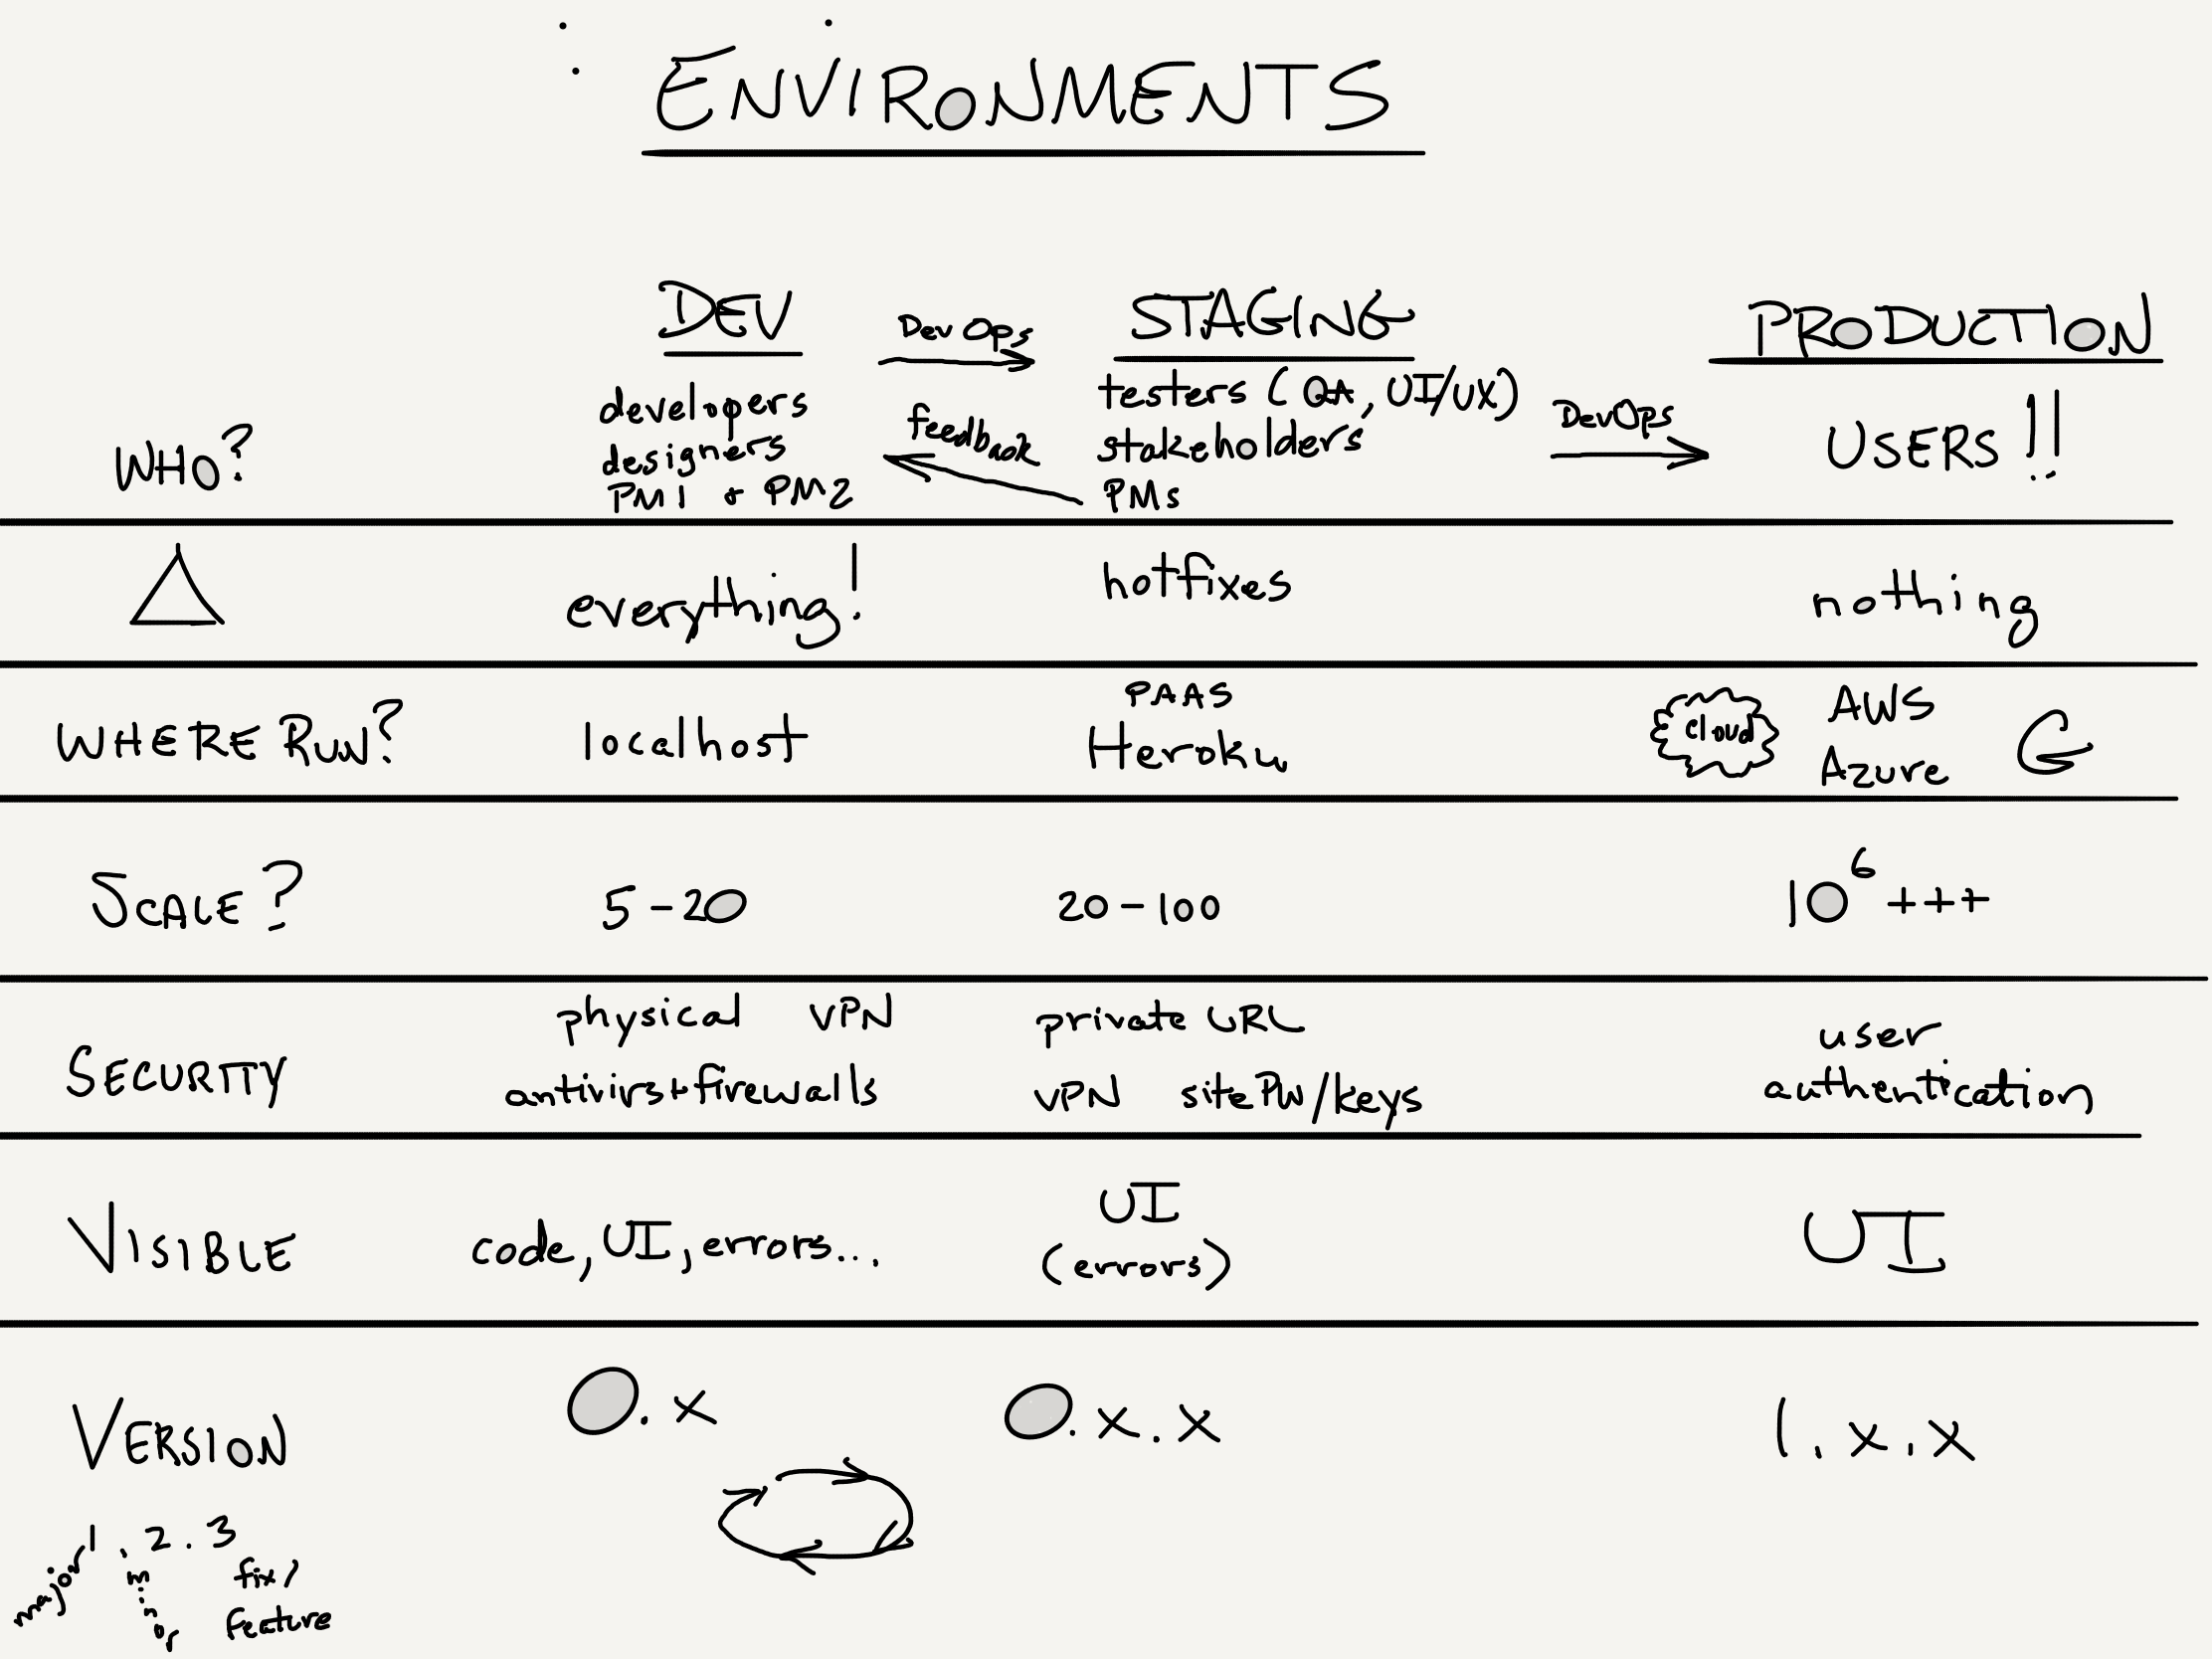 ENVIRONMENTS
DEV
DevOps
STAGING
PRODUCTION
WHO?
developers
designers
PM1 + PM2
feedback
testers (QA, UI/UX)
stakeholders
PMs
DevOps
USERS!!
△
everything!
hotfixes
nothing
WHERE RUN?
localhost
PAAS
Heroku
cloud
AWS
Azure
G
SCALE?
5-20
20-100
10⁶ +++
SECURITY
physical VPN
antivirst+firewalls
private URL
VPN site PW/keys
user
authentication
VISIBLE
code, UI, errors...
UI
(errors)
UI
VERSION
0.x
0.x.x
1.x.x
1.2.3
major
minor
fix/
feature